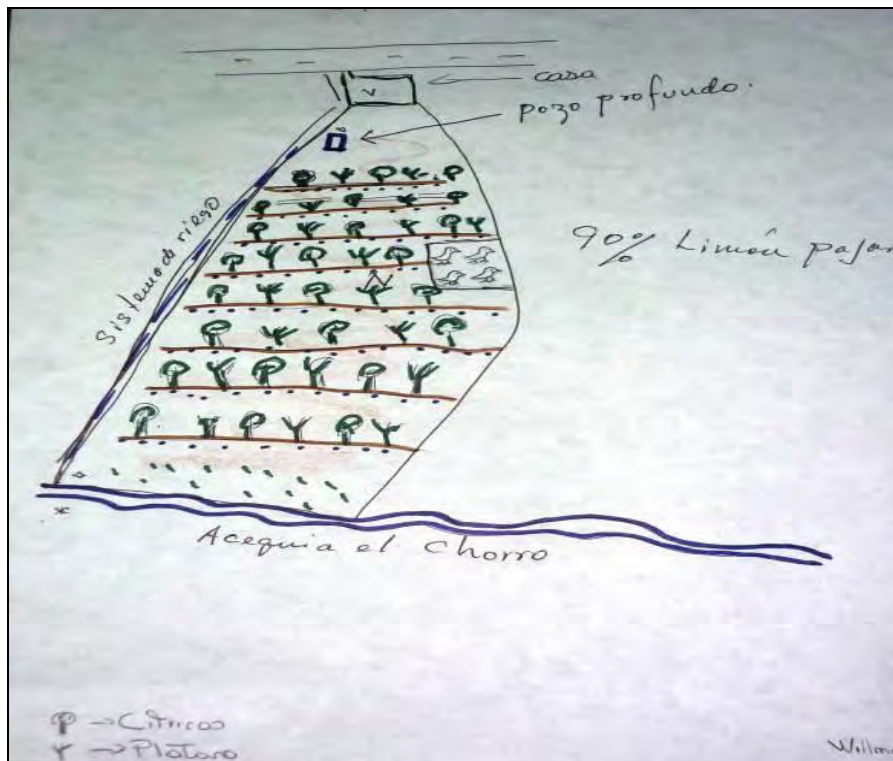 casa
pozo profundo.
Sistema de riego
90% Limón
Acequia el Chorro
→ Cítricos
→ Platano